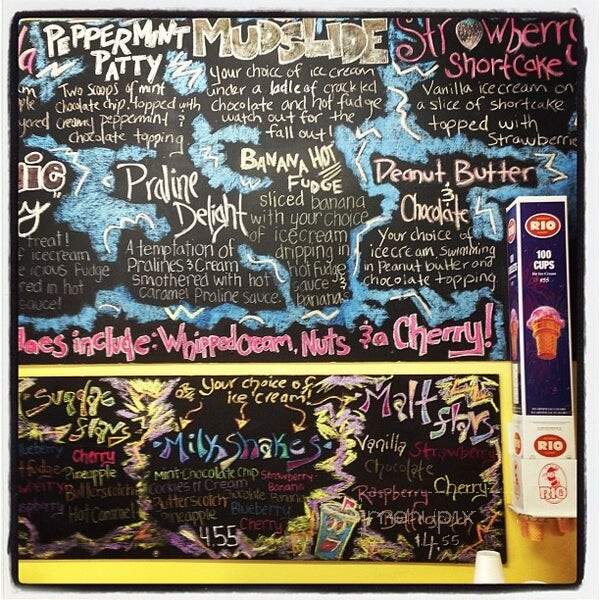 PEPPERMINT
PATTY
Two scoops of mint
chocolate chip, topped with
creamy peppermint &
chocolate topping
MUDSLIDE
Your choice of ice cream
under a ladle of crackled
chocolate and hot fudge
watch out for the
fall out!
Strawberry
Shortcake
Vanilla ice cream on
a slice of shortcake
topped with
Strawberrie
treat!
f icecream
icious Fudge
red in hot
sauce!
Praline
Delight
A temptation of
Pralines & Cream
smothered with hot
caramel Praline sauce.
BANANA HOT
FUDGE
sliced banana
with your choice
of icecream
dripping in
hot fudge
sauce &
bananas
Peanut Butter
&
Chocolate
Your choice of
icecream swimming
in Peanut butter and
chocolate topping
daes include: Whipped Cream, Nuts & a Cherry!
Sundae
flavs
Cherry
Pineapple
Butterscotch
Hot Caramel
Your choice of
ice cream!
Milkshakes
Mint Chocolate Chip
Cookies n Cream
Butterscotch
Pineapple
Strawberry-
Banana
Chocolate Banana
Blueberry
Cherry
4.55
Malt
flavs
Vanilla Strawberry
Chocolate
Raspberry Cherry
$4.55
menupix
RIO
100
CUPS
RIO
RIO